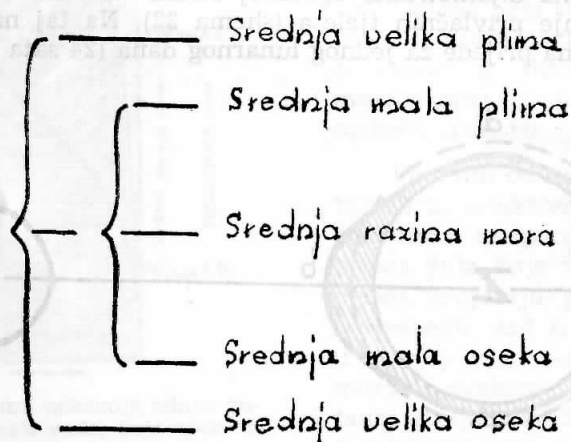 Srednja velika plima
Srednja mala plima
Srednja razina mora
Srednja mala oseka
Srednja velika oseka